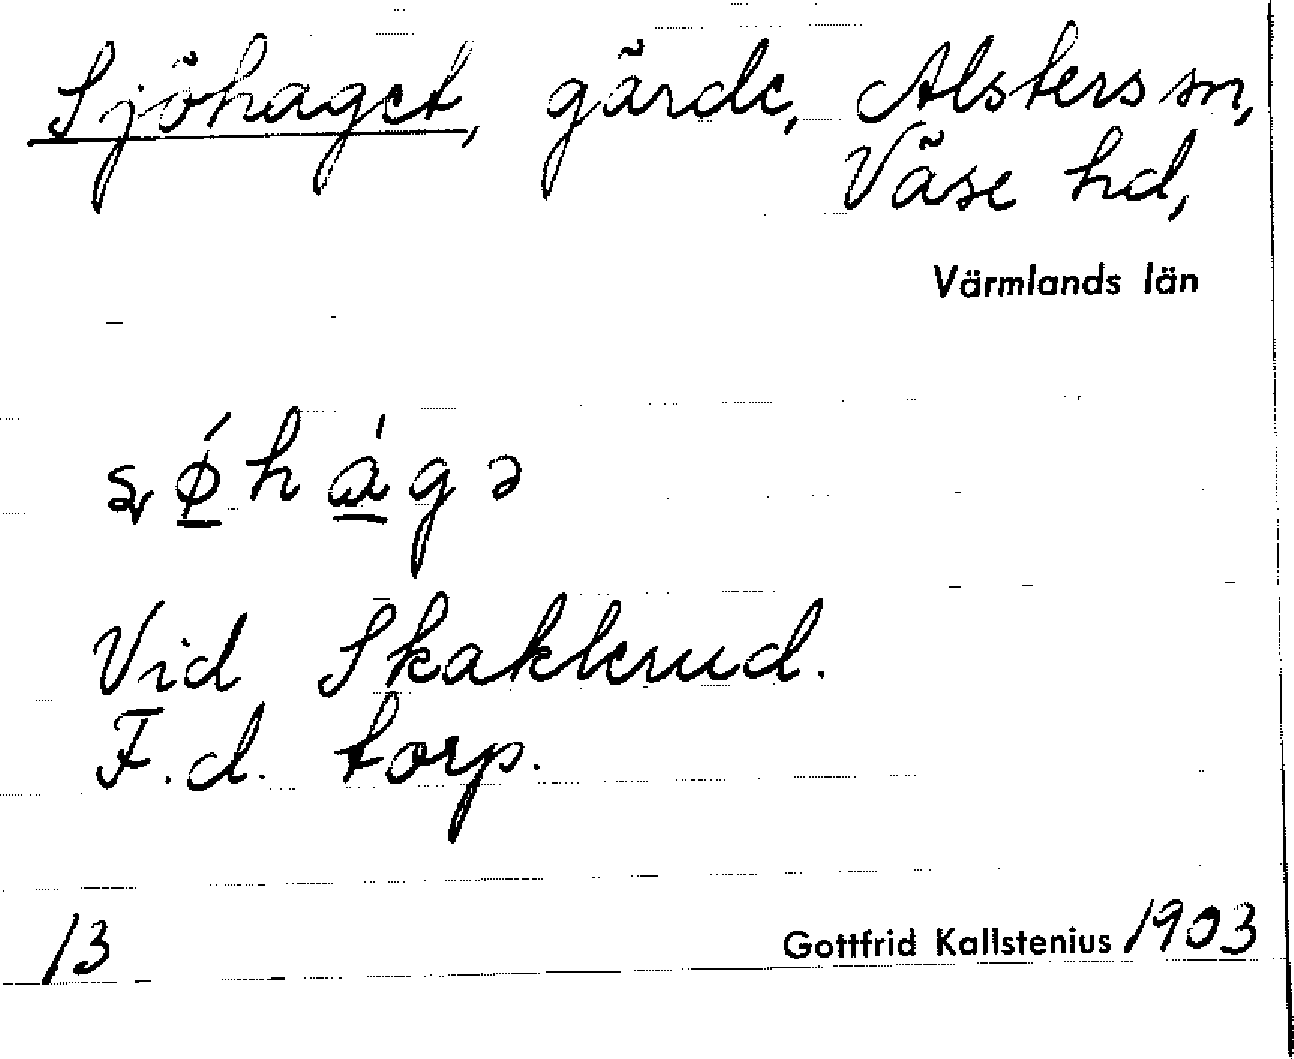 Sjöhaget, gärde, Alsters sn,
Väse hd,
Värmlands län
ꞩǿ̱hɑ̱́gə
Vid Skaklerud.
F.d. torp.
13
Gottfrid Kallstenius 1903